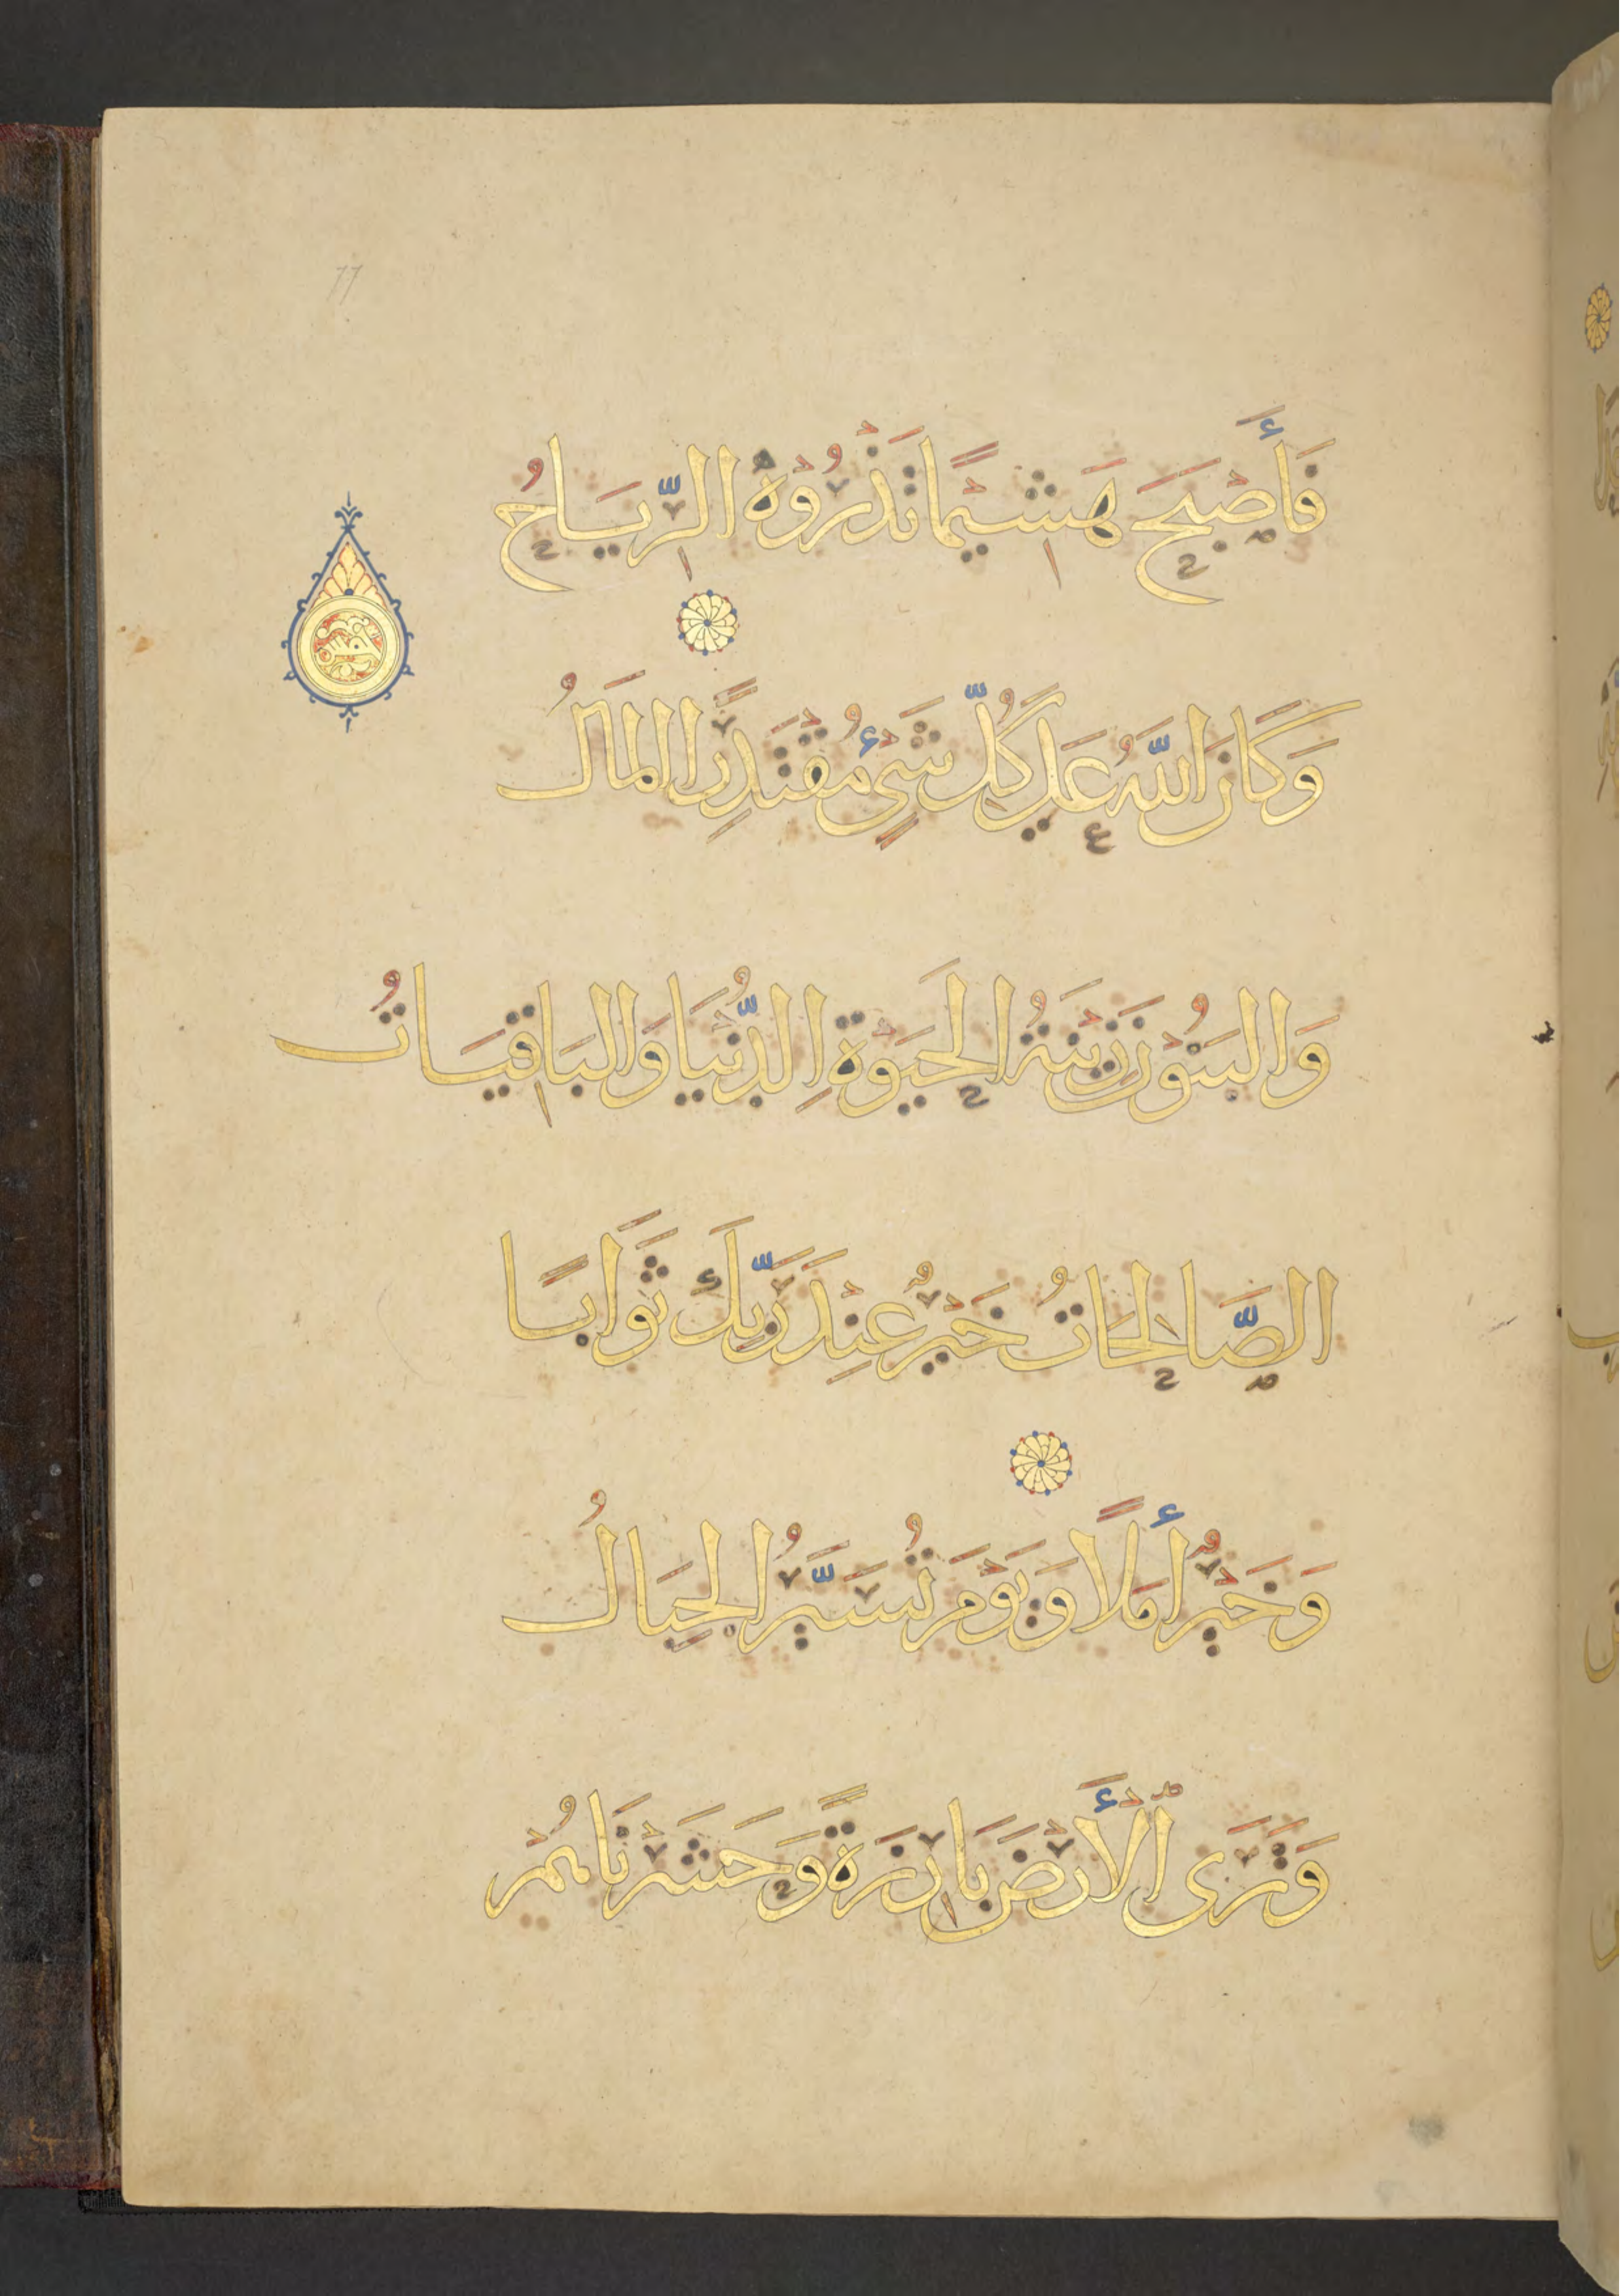 77
فَأَصْبَحَ هَشِيْمًا تَذْرُوْهُ الرِّيَاحُ
وَكَانَ اللّٰهُ عَلٰى كُلِّ شَيْءٍ مُقْتَدِرًا الْمَالُ
وَالبَنُوْنَ زِيْنَةُ الحَيَوْةِ الدُّنْيَا وَالبَاقِيَاتُ
الصَّالِحَاتُ خَيْرٌ عِنْدَ رَبِّكَ ثَوَابًا
وَخَيْرٌ أَمَلًا وَيَوْمَ تُسَيَّرُ الجِبَالُ
وَتَرَى الْأَرْضَ بَارِزَةً وَحَشَرْنَاهُمْ